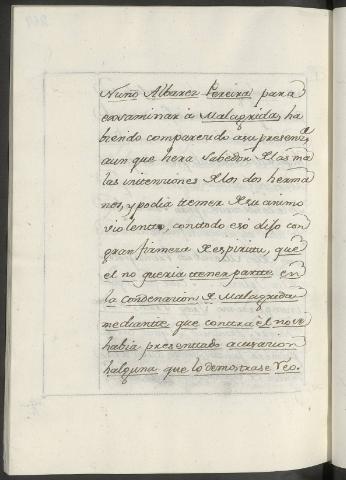 Nuño Albarez Pereira para
exsaminar à Malagrida, ha
biendo comparecido a su presencia,
aun que hera Sabedor de las ma
las intenciones de los dos herma
nos, y podia temer de su animo
violento, con todo eso dijo con
gran firmeza de espiritu, que
el no queria tener parte en
la condenacion de Malagrida
mediante que contra èl no se
habia presentado acusacion
halguna que lo demostrase reo.